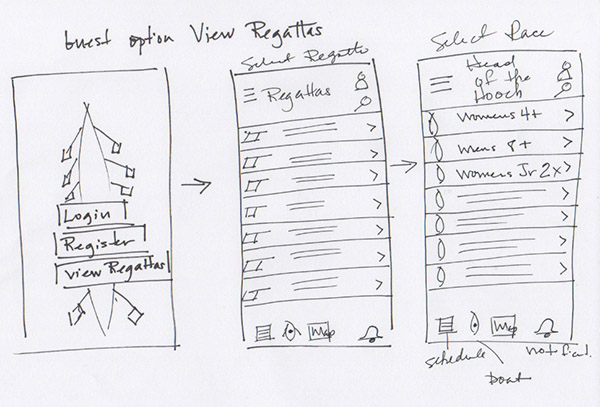 Guest option View Regattas
Login
Register
View Regattas
Select Regatta
Regattas
Map
Select Race
Head
of the
Hooch
Womens 4+
Mens 8+
Womens Jr 2x
Map
schedule
boat
notficat.